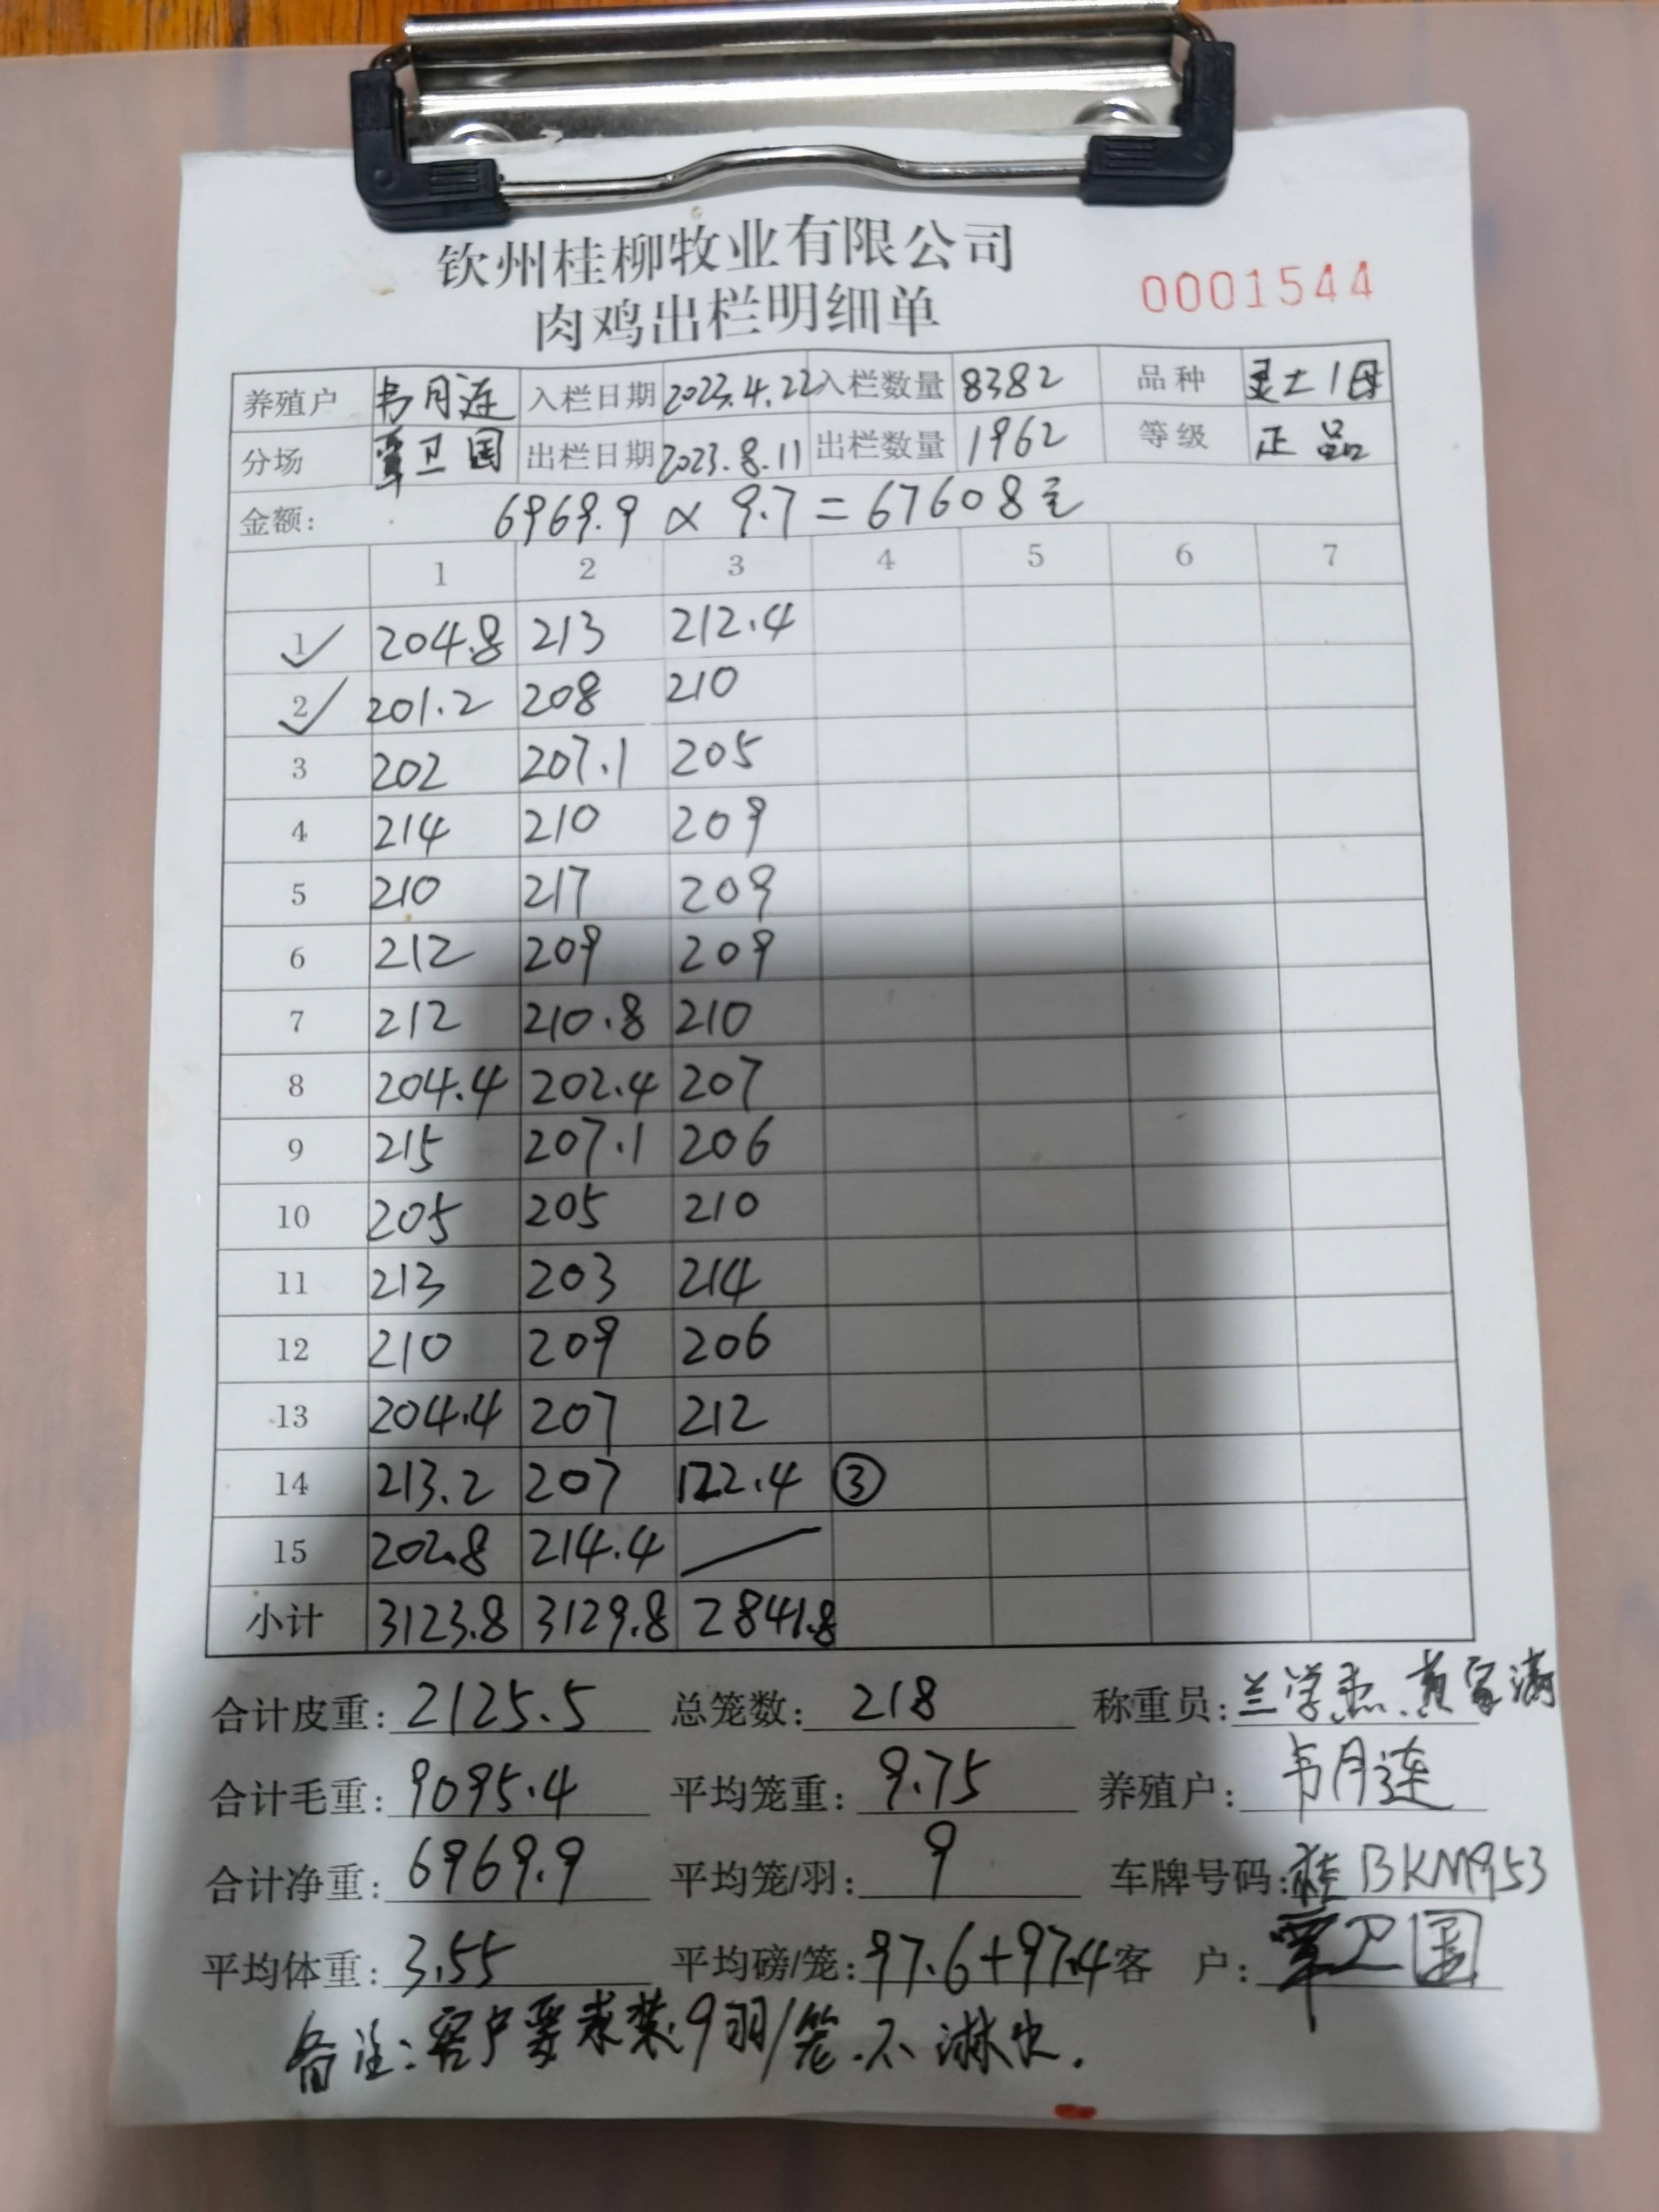 钦州桂柳牧业有限公司
肉鸡出栏明细单
0001544
养殖户 韦月连 入栏日期 2023.4.22 入栏数量 8382 品种 灵土1母
分场 覃卫国 出栏日期 2023.8.11 出栏数量 1962 等级 正品
金额: 6969.9 × 9.7 = 67608元
1 2 3 4 5 6 7
1 ✓ 204.8 213 212.4
2 ✓ 201.2 208 210
3 202 207.1 205
4 214 210 209
5 210 217 209
6 212 209 209
7 212 210.8 210
8 204.4 202.4 207
9 215 207.1 206
10 205 205 210
11 213 203 214
12 210 209 206
13 204.4 207 212
14 213.2 207 122.4 ③
15 202.8 214.4
小计 3123.8 3129.8 2841.8
合计皮重: 2125.5 总笼数: 218 称重员: 兰学杰.黄富满
合计毛重: 9095.4 平均笼重: 9.75 养殖户: 韦月连
合计净重: 6969.9 平均笼/羽: 9 车牌号码: 桂BKM953
平均体重: 3.55 平均磅/笼: 97.6+97.4 客 户: 覃卫国
备注:客户要求装9羽/笼.不淋水.